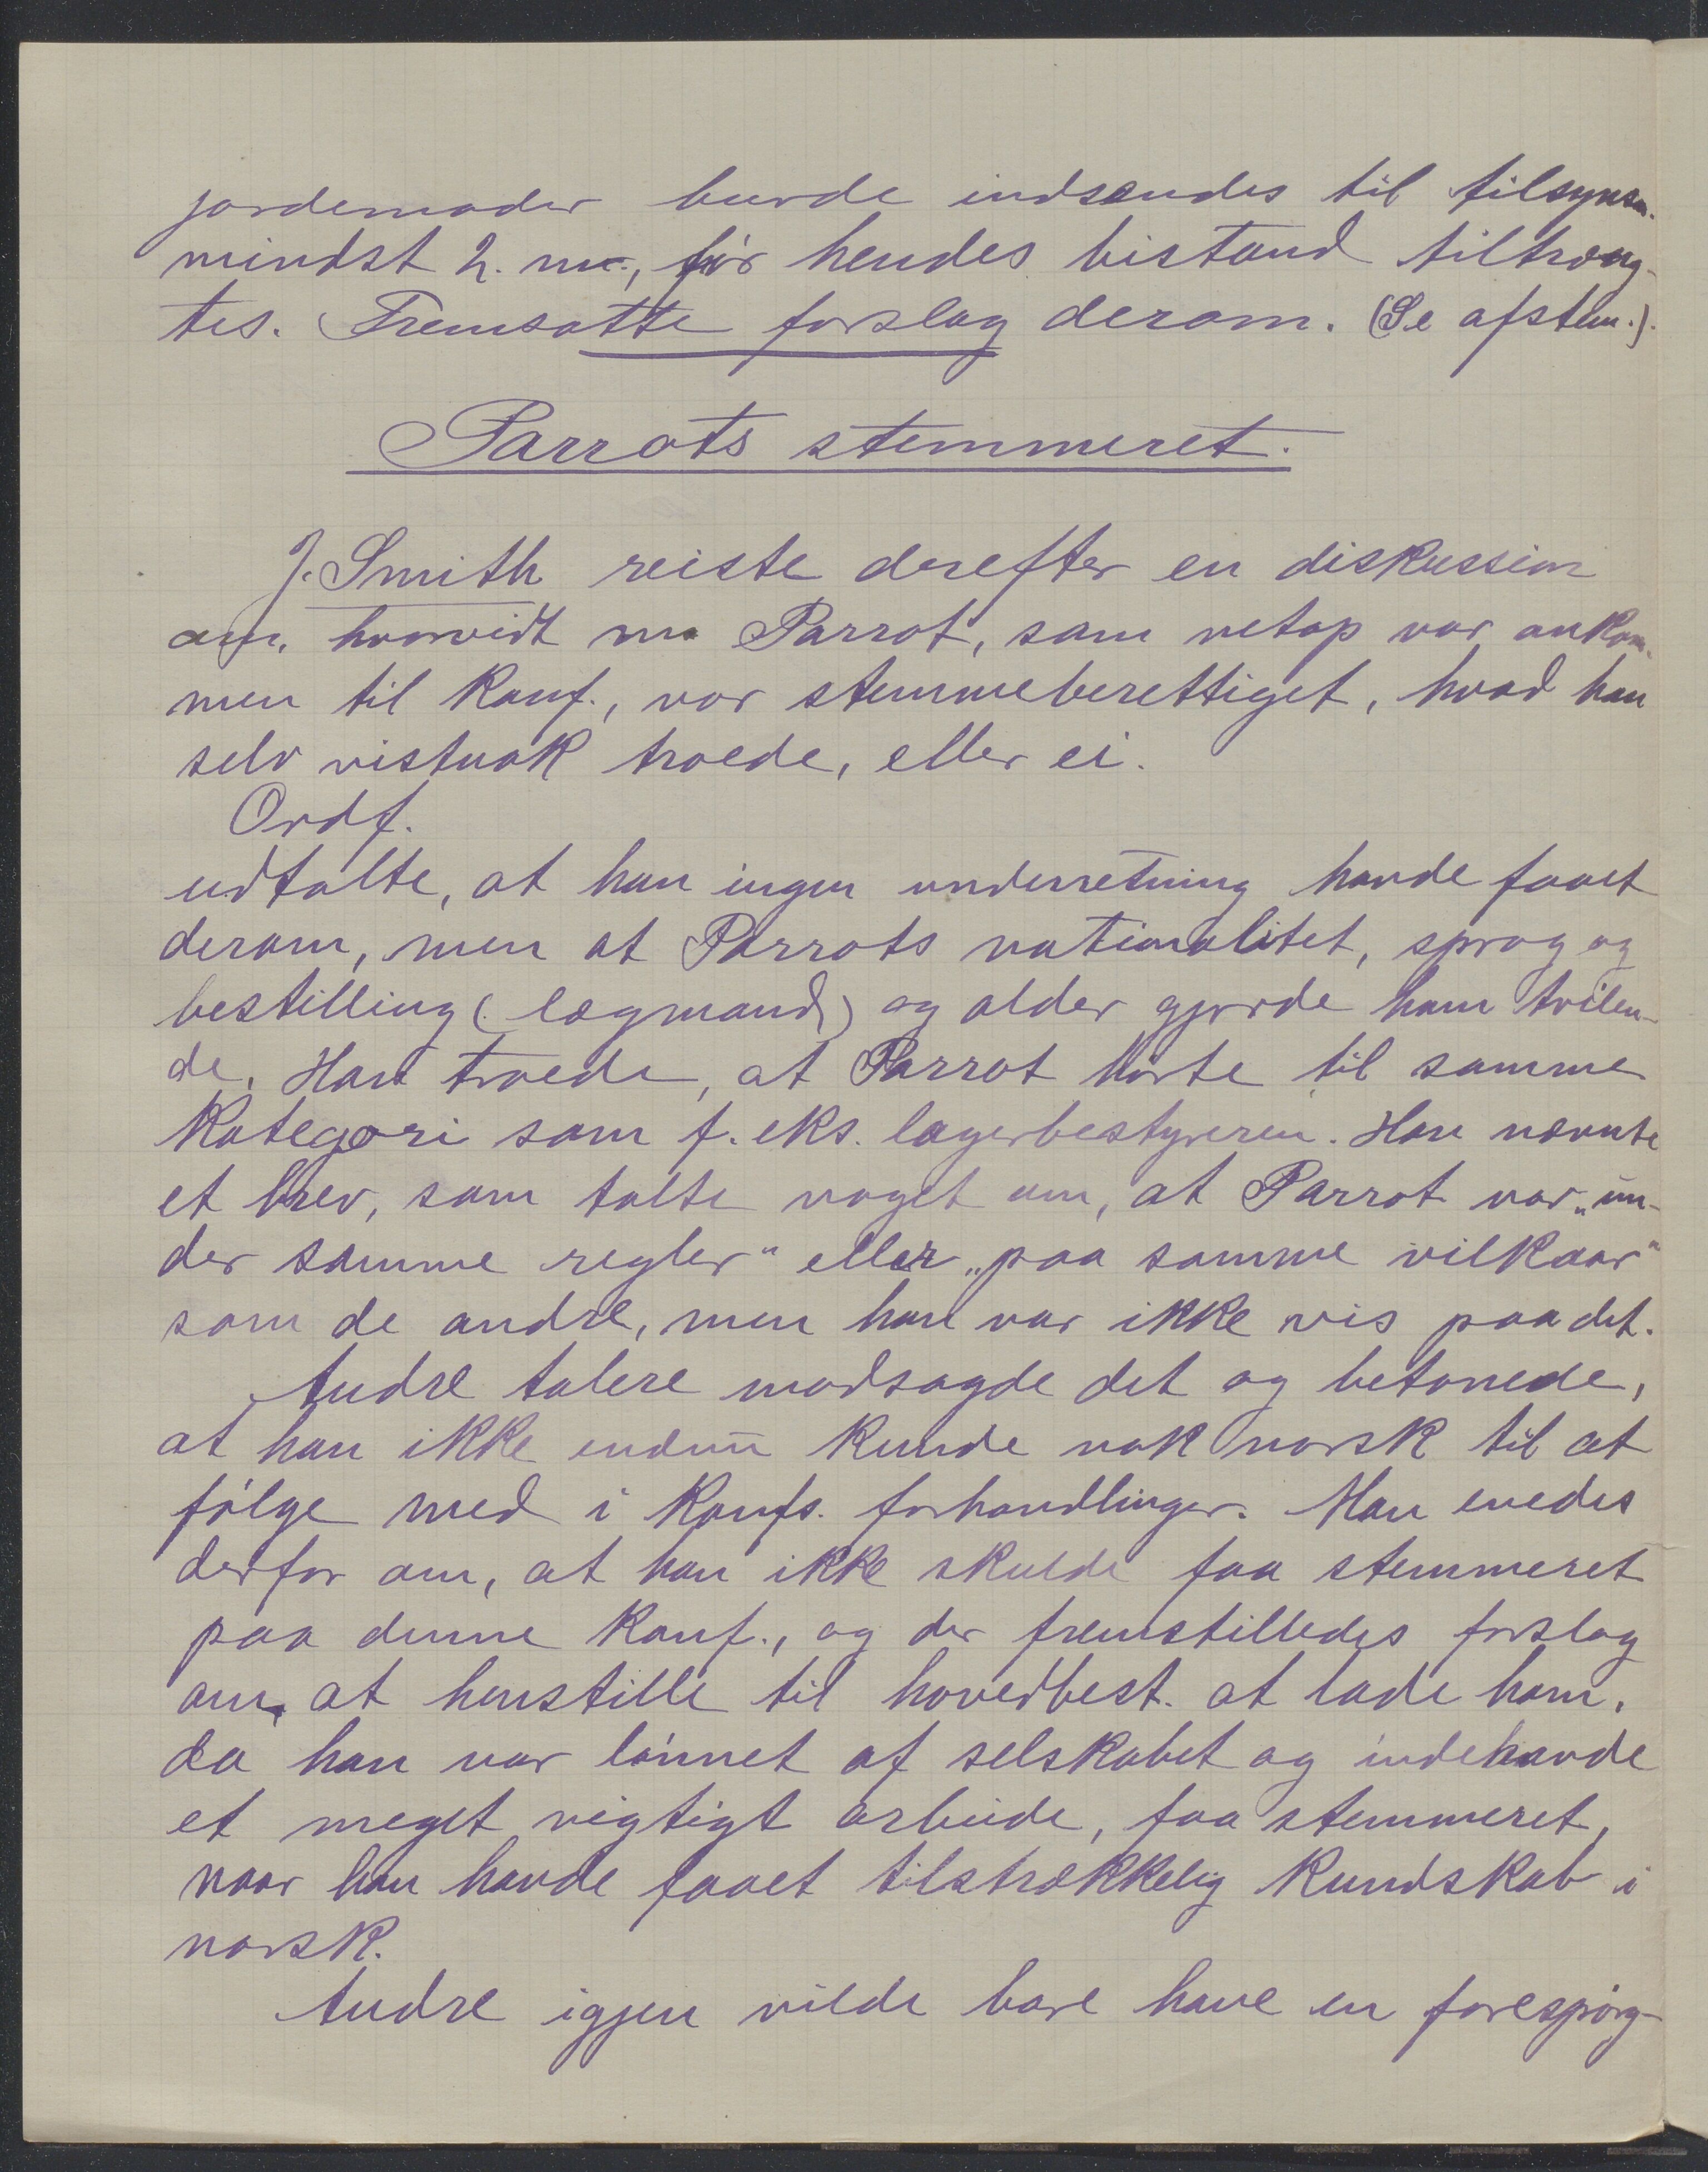 jordemoder burde indsendes til tilsynsm.
mindst 2. m., før hendes bistand tiltræng-
tes. Fremsatte forslag derom. (Se afstem.).
Parrots stemmeret.
J. Smith reiste derefter en diskussion
om, hvorvidt Parrot, som netop var ankom-
men til Konf., var stemmeberettiget, hvad han
selv vistnok troede, eller ei.
Ordf.
udtalte, at han ingen underretning havde faaet
derom, men at Parrots nationalitet, sprog og
bestilling (lægmand) og alder gjorde ham tvilen-
de. Han troede, at Parrot hørte til samme
Kategori som f. eks. lagerbestyreren. Han nævnte
et brev, som talte noget om, at Parrot var „un-
der samme regler“ eller „paa samme vilkaar“
som de andre, men han var ikke vis paa det.
Andre talere modsagde det og betonede,
at han ikke endnu kunde nok norsk til at
følge med i Konfs. forhandlinger. Man enedes
derfor om, at han ikke skulde faa stemmeret
paa denne Konf., og der fremstilledes forslag
om, at henstille til hovedbest. at lade ham,
da han var lønnet af selskabet og indehavde
et meget vigtigt arbeide, faa stemmeret,
naar han havde faaet tilstrækkelig Kundskab i
norsk.
Andre igjen vilde bare have en forespørg-